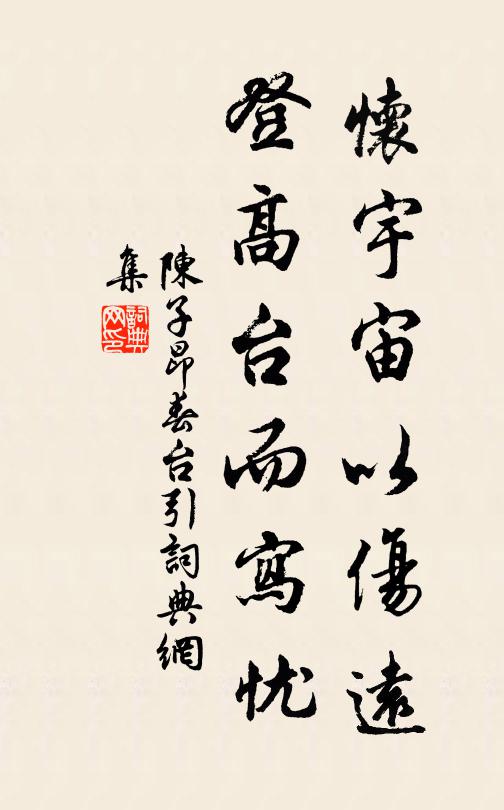 懷宇宙以傷遠
登高台而寫忧
陳子昂春台引詞典網
集
詞典
网印